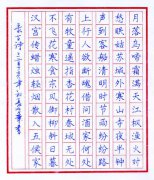 月落乌啼霜满天江枫渔火对
愁眠姑苏城外寒山寺夜半钟
声到客船清明时节雨纷纷路
上行人欲断魂借问酒家何处
有牧童遥指杏花村春城无处
不飞花寒食东风御柳斜日暮
汉宫传蜡烛轻烟散入五侯家
古诗三首